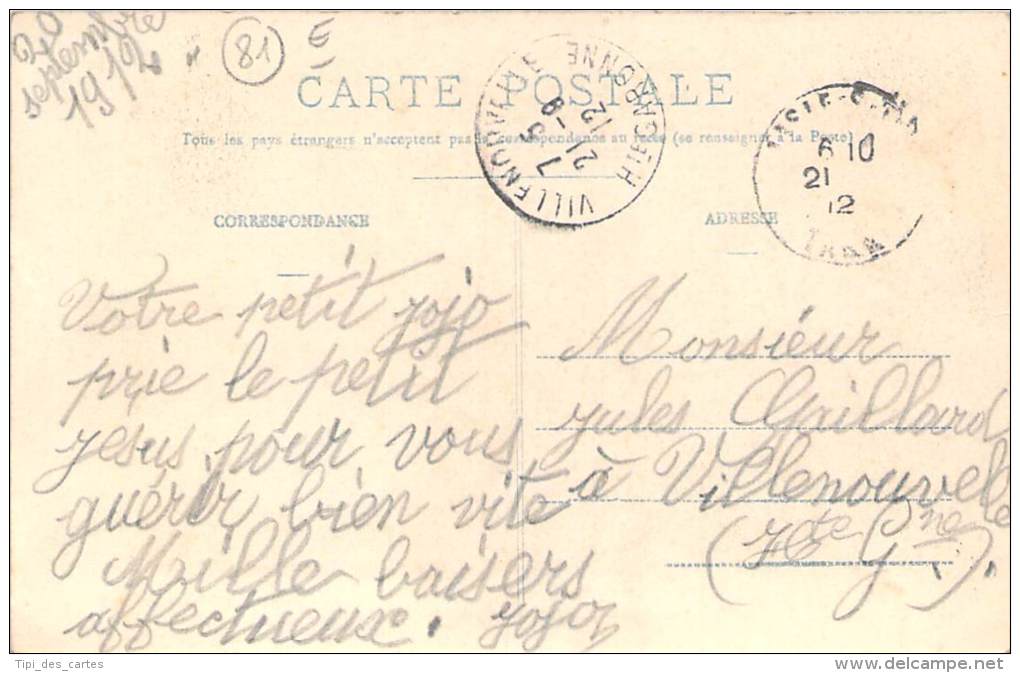 20
septembre
1912
81
E
CARTE POSTALE
Tous les pays étrangers n'acceptent pas la correspondance au recto (se renseigner à la Poste)
VILLENOUVELLE
7 5
21 - 9
12
HTE GARONNE
6 10
21
12
TARN
CORRESPONDANCE
ADRESSE
Votre petit jojo
prie le petit
jesus pour vous
guérir bien vite
Mille baisers
affectueux. Jojo
Monsieur
jules Gaillard
à Villenouvelle
(Hte Gne).
Tipi_des_cartes
www.delcampe.net